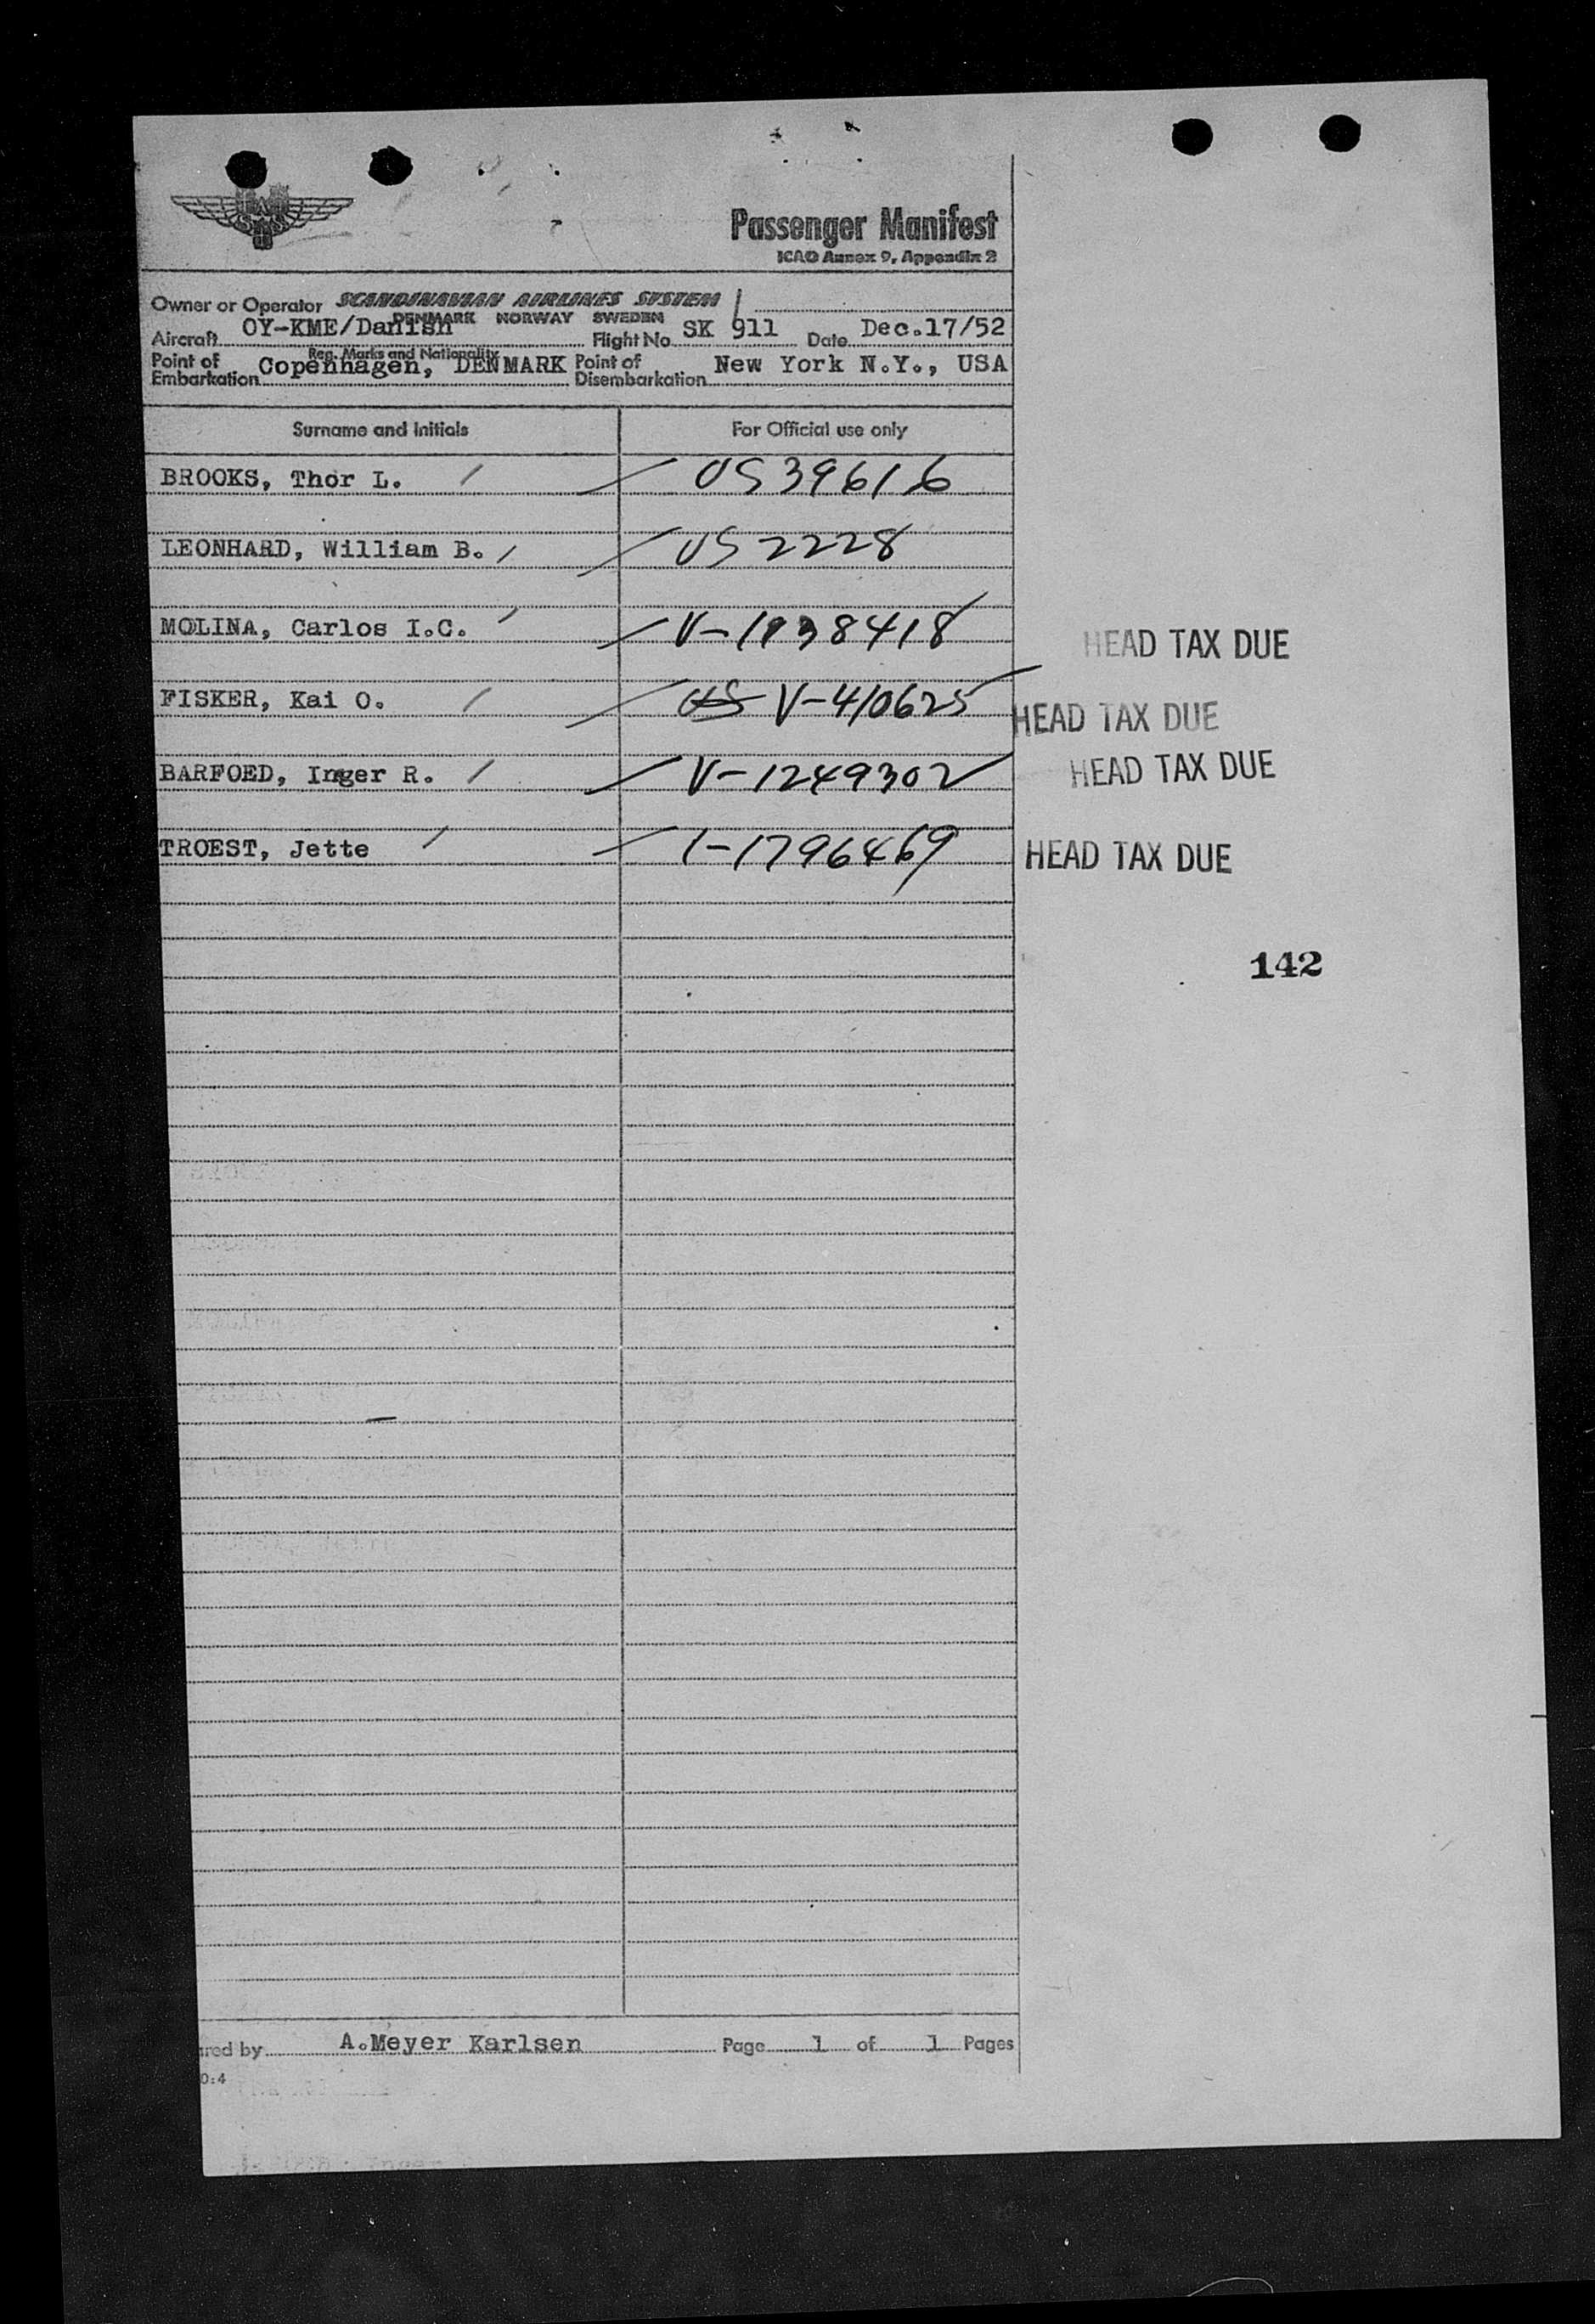 SAS
Passenger Manifest
ICAO Annex 9, Appendix 2
Owner or Operator SCANDINAVIAN AIRLINES SYSTEM
DENMARK NORWAY SWEDEN
Aircraft OY-KME/Danish Flight No. SK 911 Date Dec.17/52
Reg. Marks and Nationality
Point of Embarkation Copenhagen, DENMARK Point of Disembarkation New York N.Y., USA
Surname and Initials For Official use only
BROOKS, Thor L. US 39616
LEONHARD, William B. US 2228
MOLINA, Carlos I.C. V-1938418 HEAD TAX DUE
FISKER, Kai O. US V-410625 HEAD TAX DUE
BARFOED, Inger R. V-1249302 HEAD TAX DUE
TROEST, Jette 1-1796469 HEAD TAX DUE
142
ared by A.Meyer Karlsen Page 1 of 1 Pages
0:4